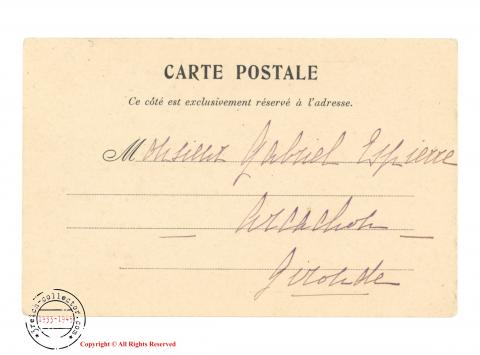 CARTE POSTALE
Ce côté est exclusivement réservé à l'adresse.
Monsieur Gabriel Espierre
Arcachon
Gironde
3reich-collector.com
1933-1945
Copyright © All Rights Reserved